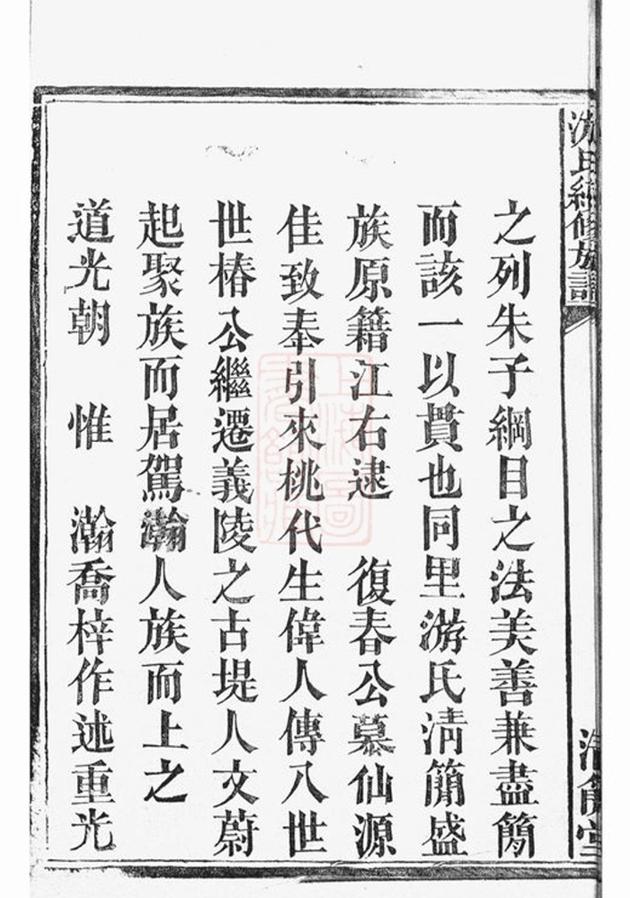 游氏續修族譜
之列朱子綱目之法美善兼盡簡
而該一以貫也同里游氏清簡盛
族原籍江右逮 復春公慕仙源
佳致奉引來桃代生偉人傳八世
世椿公繼遷義陵之古堤人文蔚
起聚族而居駕瀚人族而上之
道光朝 惟 瀚喬梓作述重光